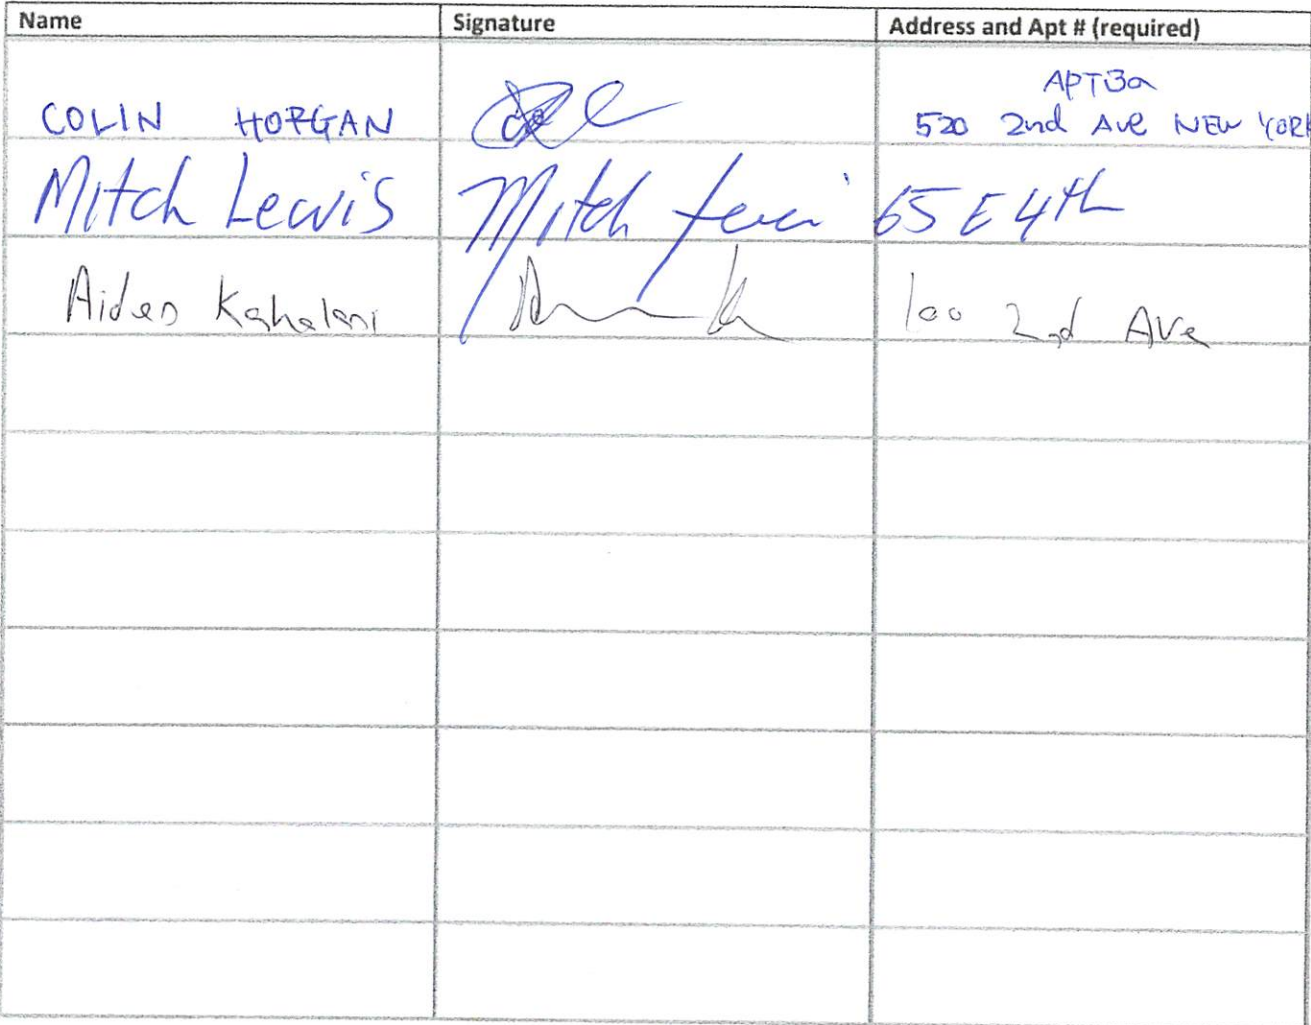 Name Signature Address and Apt # (required)
APT3a
COLIN HORGAN 520 2nd Ave NEW YORK
Mitch Lewis Mitch 65 E 4th
Aiden Kahalani 100 2nd Ave